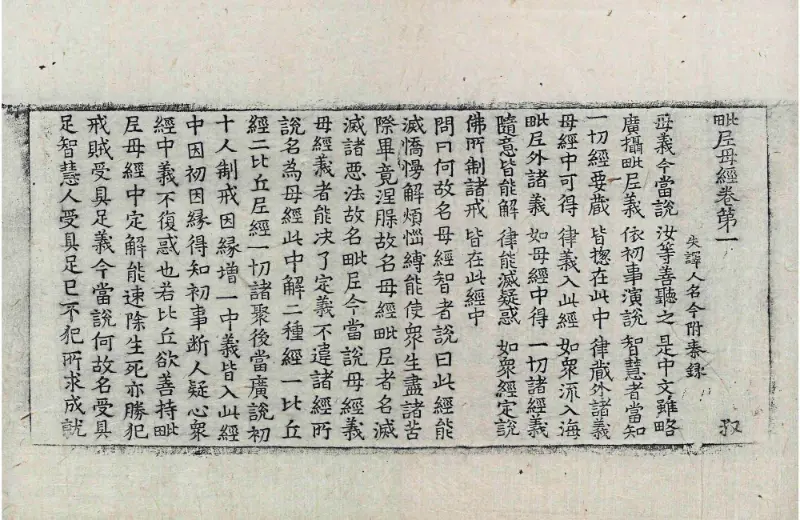 毗尼母經卷第一 叔
失譯人名今附秦錄
母義今當說 汝等善聽之 是中文雖略
廣攝毗尼義 依初事演說 智慧者當知
一切經要藏 皆揔在此中 律藏外諸義
母經中可得 律義入此經 如衆流入海
毗尼外諸義 如母經中得 一切諸經義
隨意皆能解 律能滅疑惑 如衆經定說
佛所制諸戒 皆在此經中
問曰何故名母經智者說曰此經能
滅憍慢解煩惱縛能使衆生盡諸苦
際畢竟涅槃故名母經毗尼者名滅
滅諸惡法故名毗尼今當說母經義
母經義者能决了定義不違諸經所
說名為母經此中解二種經一比丘
經二比丘尼經一切諸聚後當廣說初
十人制戒因緣增一中義皆入此經
中因初因緣得知初事断人疑心衆
經中義不復惑也若比丘欲善持毗
尼母經中定解能速除生死亦勝犯
戒賊受具足義今當說何故名受具
足智慧人受具足已不犯所求成就